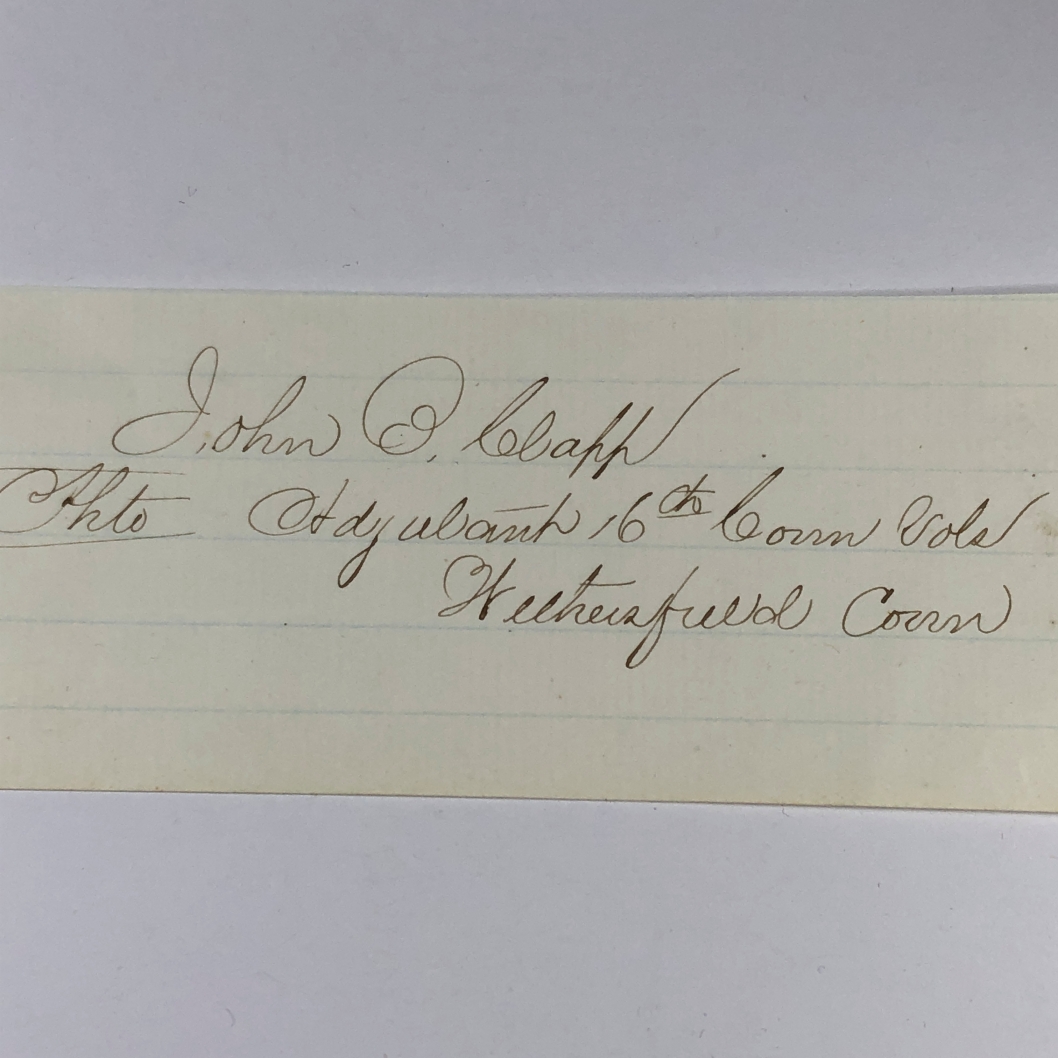 John B. Clapp
Phto Adjutant 16th Conn Vols
Wethersfield Conn